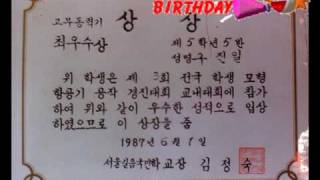 BIRTHDAY
고무동력기
상 상
최우수상
제 5 학년 5 반
성명 구 진 일
위 학생은 제 3회 전국 학생 모형
항공기 공작 경진대회 교내대회에 참가
하여 위와 같이 우수한 성적으로 입상
하였으므로 이 상장을 줌
1987년 6월 1일
서울길음국민학교장 김정숙